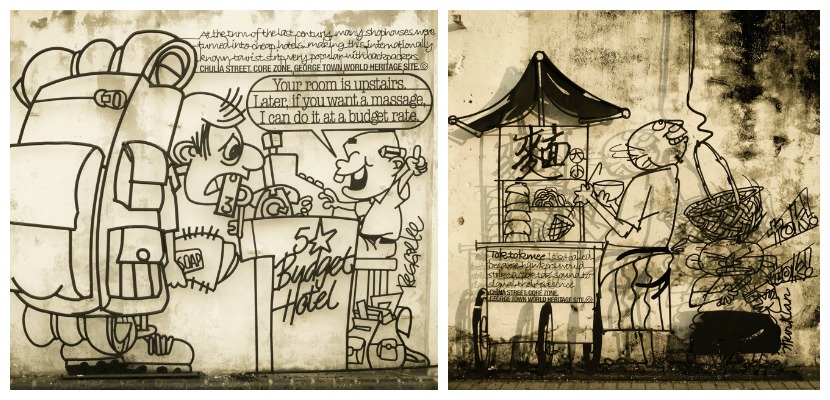 At the turn of the last century, many shophouses were
turned into cheap hotels, making this internationally
known tourist strip very popular with backpackers.
CHULIA STREET, CORE ZONE, GEORGE TOWN WORLD HERITAGE SITE.
Your room is upstairs.
Later, if you want a massage,
I can do it at a budget rate.
3
SOAP
5
Budget
Hotel
Reggie Lee
麵
Tok tok mee is so called
because hawkers would
strike a tok tok sound to
signal their presence
CHULIA STREET, CORE ZONE,
GEORGE TOWN WORLD HERITAGE SITE.
Tok!
Tok!